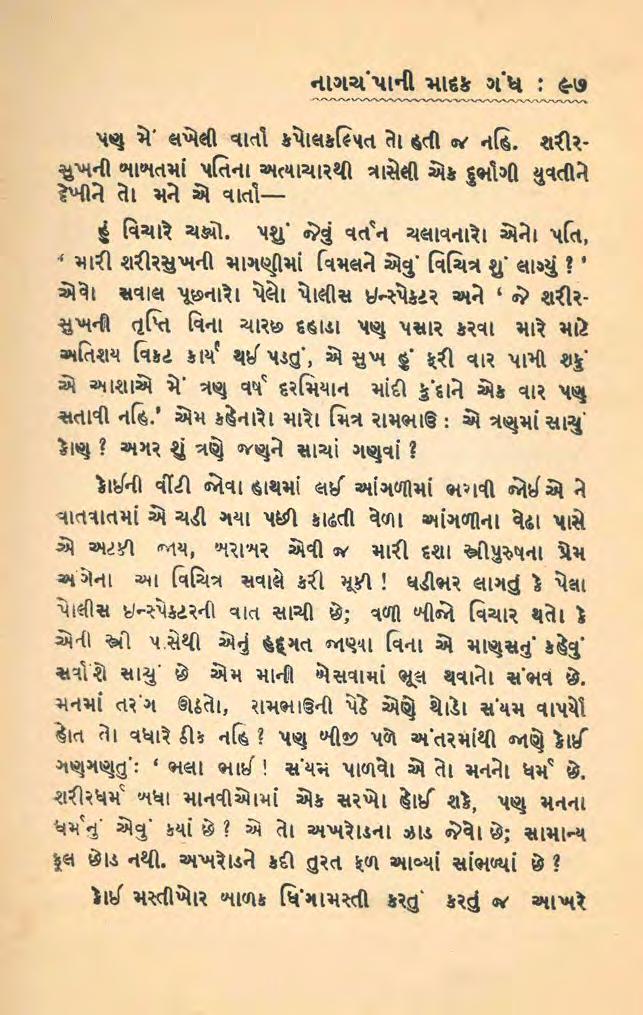 નાગચંપાની માદક ગંધ : ૯૭
પણુ મેં લખેલી વાર્તા કપોલકલ્પિત તો હતી જ નહિ. શરીર-
સુખની બાબતમાં પતિના અત્યાચારથી ત્રાસેલી એક દુર્ભાગી યુવતીને
દેખીને તો મને એ વાર્તા—
હું વિચારે ચડ્યો. પશુ જેવું વર્તન ચલાવનારો એનો પતિ,
‘ મારી શરીરસુખની માગણીમાં વિમલને એવું વિચિત્ર શું લાગ્યું ? ’
એવો સવાલ પૂછનારો પેલો પોલીસ ઇન્સ્પેક્ટર અને ‘ જે શરીર-
સુખની તૃપ્તિ વિના ચારછ દહાડા પણ પસાર કરવા મારે માટે
અતિશય વિકટ કાર્ય થઈ પડતું, એ સુખ હું ફરી વાર પામી શકું
એ આશાએ મેં ત્રણ વર્ષ દરમિયાન માંદી કુંદાને એક વાર પણ
સતાવી નહિ.’ એમ કહેનારો મારો મિત્ર રામભાઉ : એ ત્રણમાં સાચું
કોણ ? અગર શું ત્રણે જણને સાચાં ગણવાં ?
કોઈની વીંટી જોવા હાથમાં લઈ આંગળીમાં ભરાવી જોઈએ ને
વાતવાતમાં એ ચડી ગયા પછી કાઢતી વેળા આંગળીના વેઢા પાસે
એ અટકી જાય, બરાબર એવી જ મારી દશા સ્ત્રીપુરુષના પ્રેમ
અંગેના આ વિચિત્ર સવાલે કરી મૂકી ! ઘડીભર લાગતું કે પેલા
પોલીસ ઇન્સ્પેક્ટરની વાત સાચી છે; વળી બીજો વિચાર થતો કે
એની સ્ત્રી પાસેથી એનું હૃદ્ગત જાણ્યા વિના એ માણસનું કહેવું
સર્વાંશે સાચું છે એમ માની બેસવામાં ભૂલ થવાનો સંભવ છે.
મનમાં તરંગ ઊઠતો, રામભાઉની પેઠે એણે થોડો સંયમ વાપર્યો
હોત તો વધારે ઠીક નહિ ? પણ બીજી પળે અંતરમાંથી જાણે કોઈ
ગણગણતું : ‘ ભલા ભાઈ ! સંયમ પાળવો એ તો મનનો ધર્મ છે.
શરીરધર્મ બધા માનવીઓમાં એક સરખો હોઈ શકે, પણ મનના
ધર્મનું એવું કયાં છે ? એ તો અખરોડના ઝાડ જેવો છે; સામાન્ય
ફૂલ છોડ નથી. અખરોડને કદી તુરત ફળ આવ્યાં સાંભળ્યાં છે ?
કોઈ મસ્તીખોર બાળક ધિંગામસ્તી કરતું કરતું જ આખરે